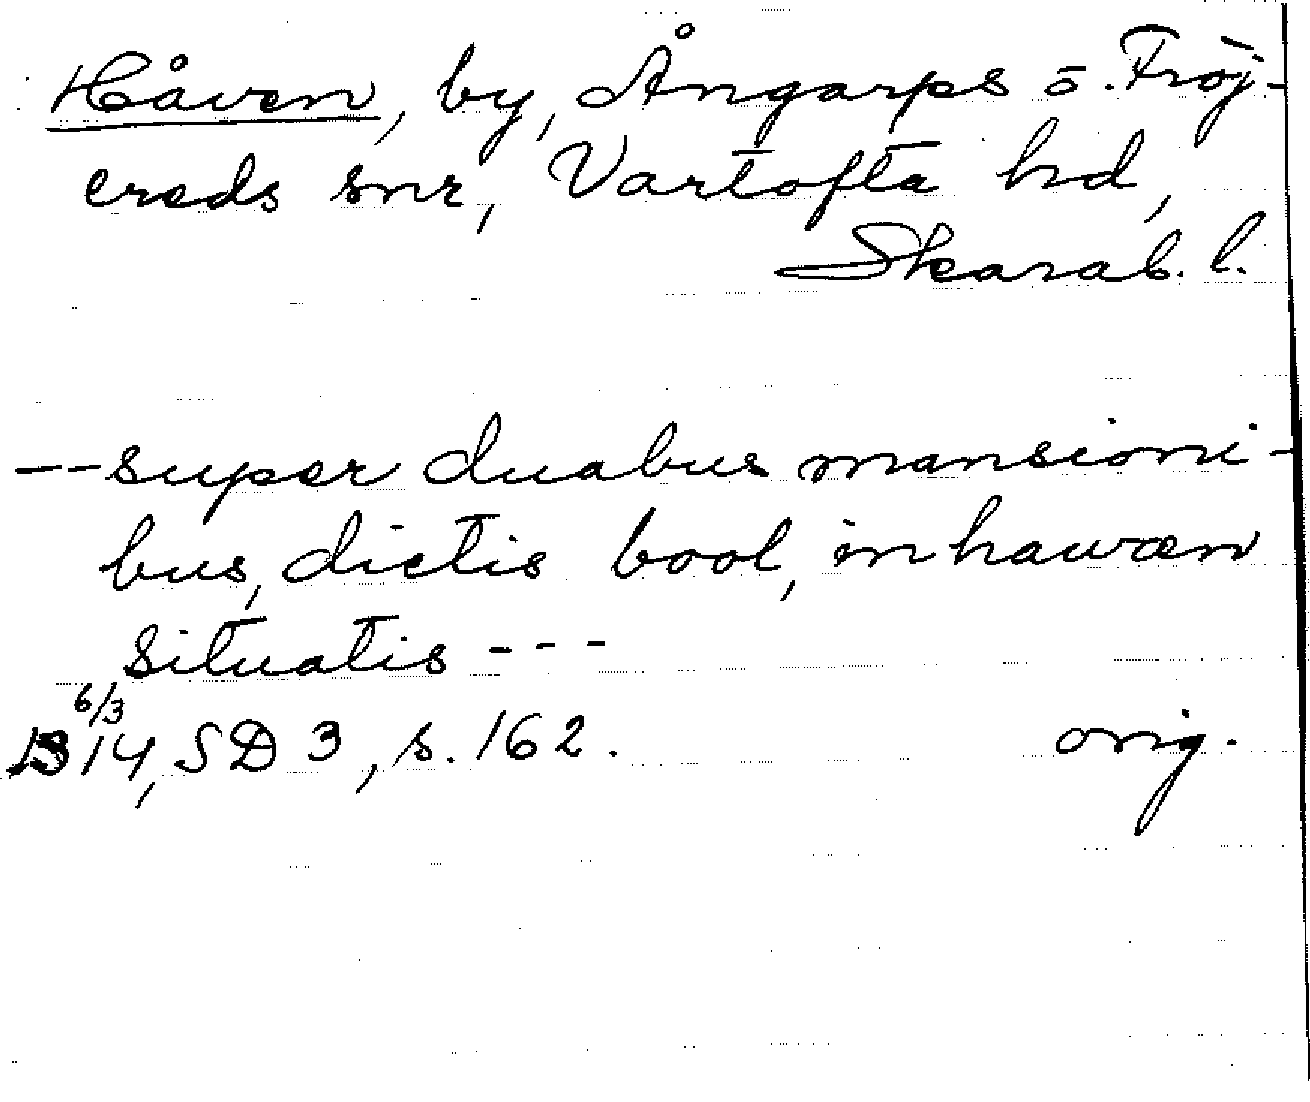 Håven, by, Ångarps o. Fröj-
ereds snr, Vartofta hd,
Skarab. l.
-- super duabus mansioni-
bus, dictis bool, in hawæn
situatis - - -
6/3
1314, SD 3, s. 162. orig.